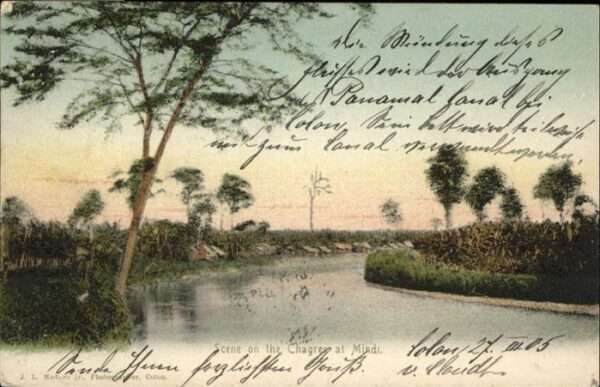 Die Mündung dieses
Flusses wird der Ausgang
des Panamal Canal bei
Colon. Sein Bett wird teilweise
mit zum Canal verwendet werden.
Scene on the Chagres at Mindi.
J. L. Maduro Jr., Colon.
Sende Ihnen herzlichsten Gruß.
Colon 27. III 05
v.